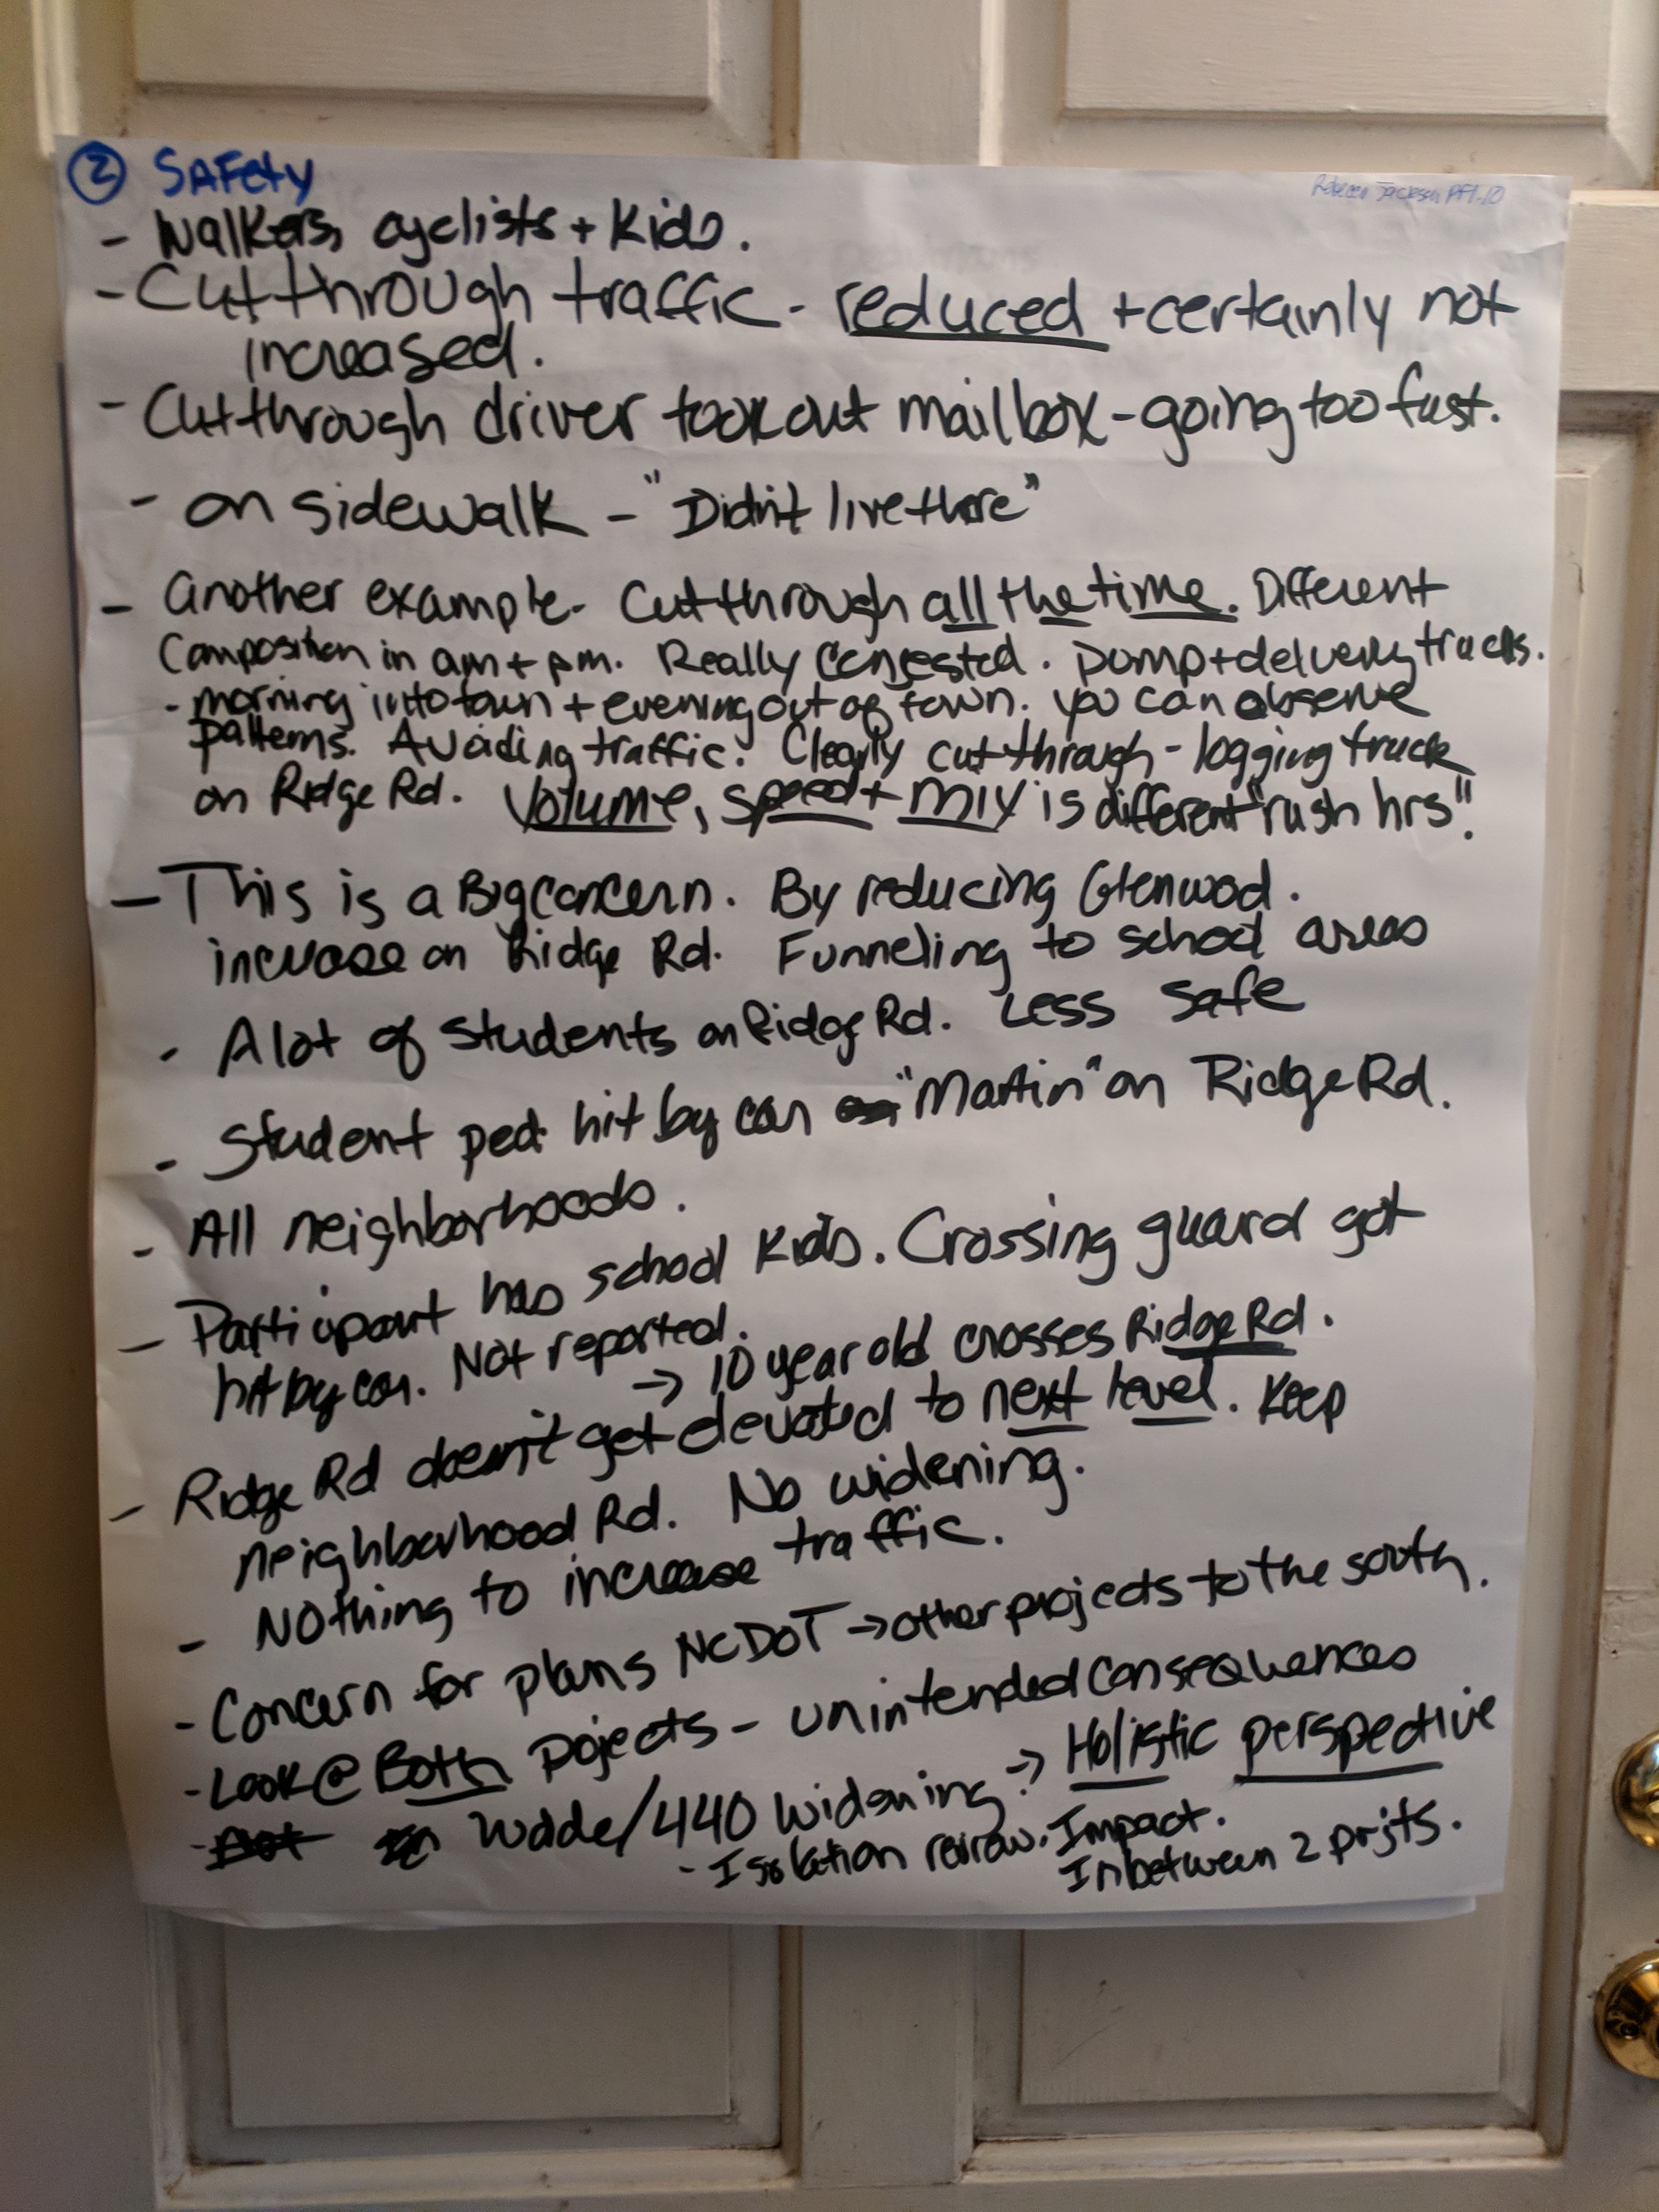 ② SAFety
Rebecca Jackson PF1-10
- Walkers, cyclists + Kids.
- Cut through traffic - reduced + certainly not
increased.
- Cut through driver took out mailbox - going too fast.
- on sidewalk - "Didn't live there"
- Another example - Cut through all the time. Different
Composition in am + pm. Really Congested. Dump + delivery trucks.
- morning into town + evening out of town. You can observe
patterns. Avoiding traffic. Clearly cut through - logging truck
on Ridge Rd. Volume, speed + mix is different "rush hrs".
- This is a Big concern. By reducing Glenwood.
increase on Ridge Rd. Funneling to school areas
- A lot of students on Ridge Rd. Less safe
- Student ped. hit by car "Martin" on Ridge Rd.
- All neighborhoods.
- Participant has school kids. Crossing guard got
hit by car. Not reported.
→ 10 year old crosses Ridge Rd.
- Ridge Rd doesn't get elevated to next level. Keep
neighborhood Rd. No widening.
- Nothing to increase traffic.
- Concern for plans NCDOT → other projects to the south.
- Look @ Both Pojects - unintended consequences
- Wade/440 Widening → Holistic perspective
- Isolation review. Impact.
In between 2 prjts.